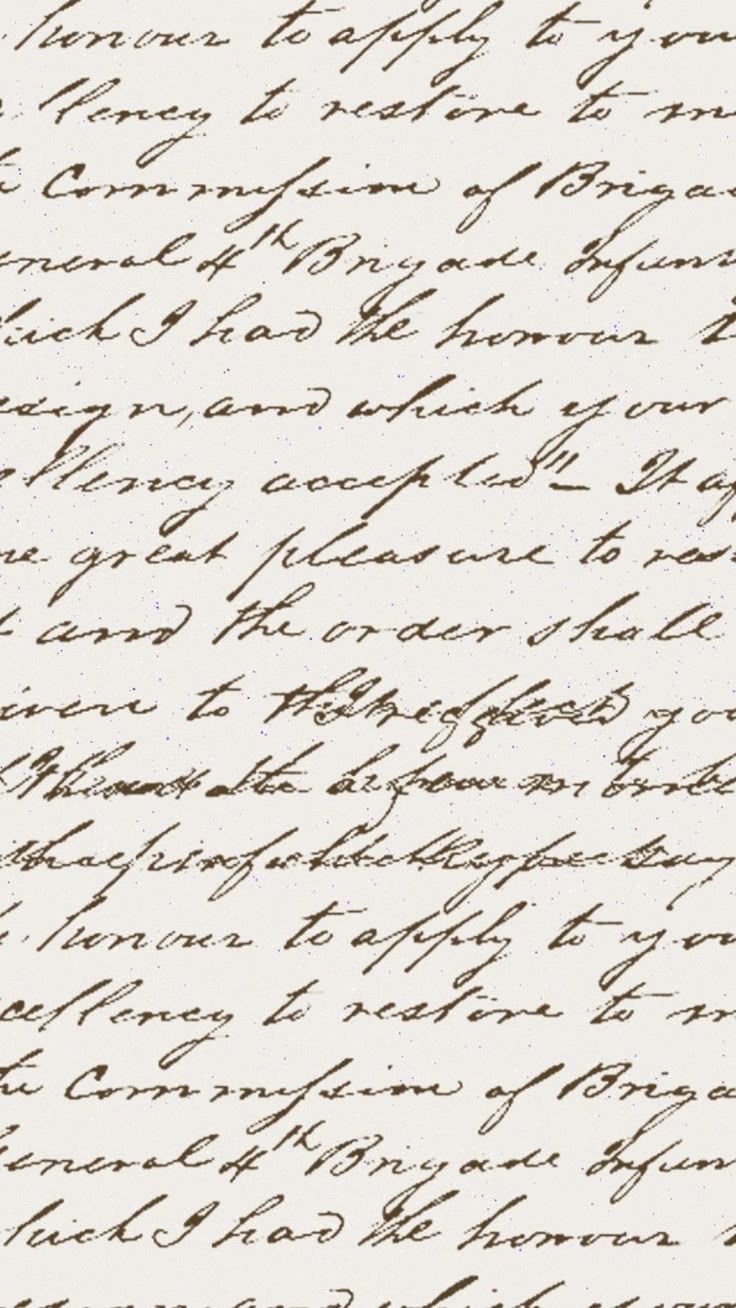 honour to apply to you
llency to restore to m
Commission of Briga
eneral 4th Brigade Infan
hich I had the honour t
esign, and which your
ellency accepted" _ It af
me great pleasure to res
t and the order shall
iven to yo
honour to apply to you
cellency to restore to m
Commission of Briga
General 4th Brigade Infan
hich I had the honour
esign, and which your